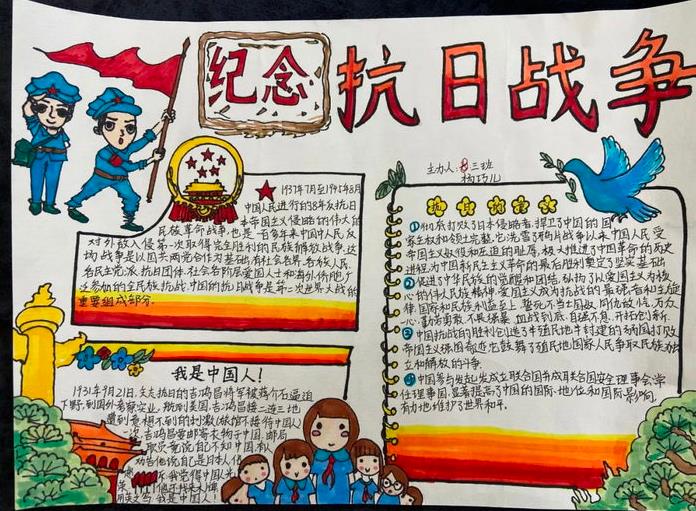 纪念
抗日战争
主办人:三班
杨巧儿
1937年7月至1945年8月
中国人民进行的8年抗日
本帝国主义侵略的伟大的
民族革命战争,也是一百多年来中国人民反
对外敌入侵第一次取得完全胜利的民族解放战争,这
场战争是以国共两党合作为基础,有社会各界、各族人民、
各民主党派、抗日团体、社会各阶层爱国人士和海外侨胞广
泛参加的全民族抗战,中国的抗日战争是第二次世界大战的
重要组成部分.
我是中国人!
1931年9月21日,矢志抗日的吉鸿昌将军被蒋介石逼迫
下野,到国外考察实业,船到美国,吉鸿昌接二连三地
遭到意想不到的刺激,
次,吉鸿昌要邮寄衣物于中国,邮局
职员竟说自己不知中国
劝告他说自己是日本人
我觉得当中国人光
用英文写:我是中国人!
①彻底打败了日本侵略者,捍卫了中国的国
家主权和领土完整,它洗雪了鸦片战争以来中国人民受
帝国主义奴役和压迫的耻辱,极大推进了中国革命的历史
进程,为中国新民主主义革命的最后胜利奠定了坚实基础.
②促进了中华民族的觉醒和团结,弘扬了以爱国主义为核
心的伟大民族精神,爱国主义成为抗战的最强音和主旋
律,国家和民族利益至上、誓死不当亡国奴
心、勤劳勇敢、不畏强暴、血战到底、自强不息、开拓创新.
③中国抗战的胜利创造了半殖民地半封建的弱国打败
帝国主义强国奇迹,它鼓舞了殖民地国家人民争取民族独
立和解放的斗争.
④中国参与发起发成立联合国并成联合国安全理事会常
任理事国,显著提高了中国的国际地位和国际影响,
有力地维护了世界和平.